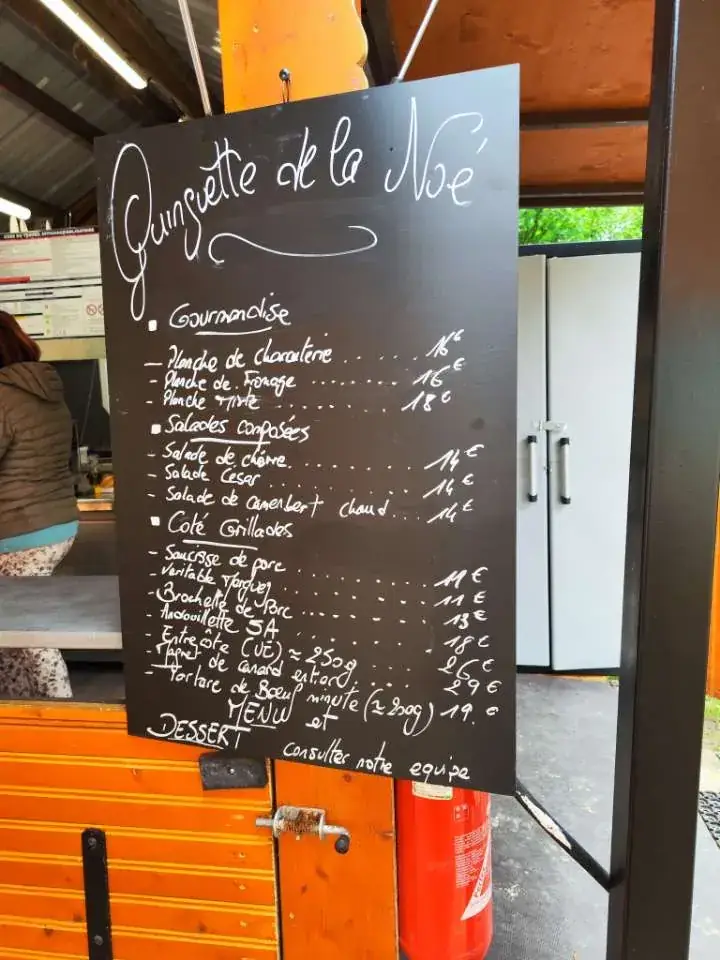 Guinguette de la Noé
Gourmandise
- Planche de charcuterie ....... 16€
- Planche de Fromage .......... 16€
- Planche Mixte ............ 18€
Salades composées
- Salade de chèvre .......... 14€
- Salade César .......... 14€
- Salade de camembert chaud ... 14€
Coté Grillades
- Saucisse de porc .......... 11€
- Veritable Merguez .......... 11€
- Brochette de Porc .......... 13€
- Andouillette 5A .......... 18€
- Entrecôte (UE) ≈ 250g .... 26€
- Magret de canard entier .... 29€
- Tartare de Boeuf minute (≈200g) 19.€
MENU et
DESSERT consulter notre equipe